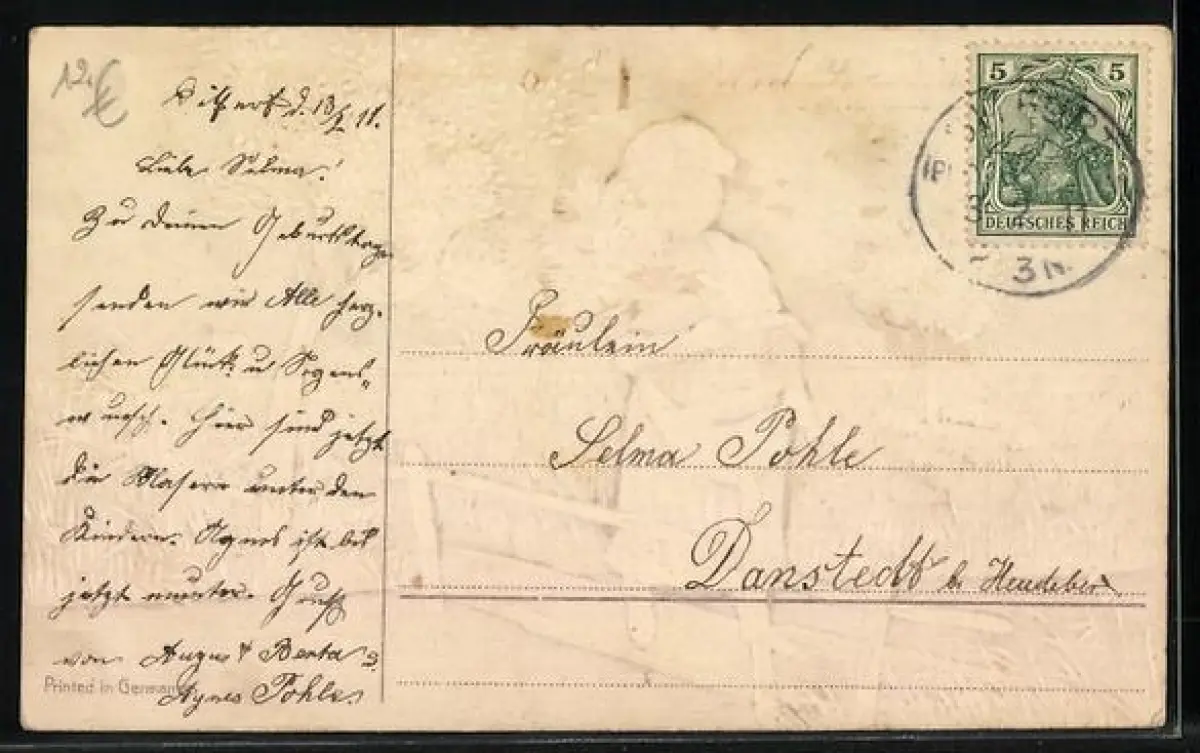 12.€
Ditfurt d. 13/2. 11.
Liebe Selma!
Zu deinem Geburtstage
senden wir Alle herz-
lichen Glück- u Segens-
wunsch. Hier sind jetzt
die Masern unter den
Kindern. Agnes ist bis
jetzt munter. Gruß
von August Berta &
Agnes Pohle.
Printed in Germany
5 5
DEUTSCHES REICH
3N.
Fräulein
Selma Pohle
Danstedt b. Heudeber